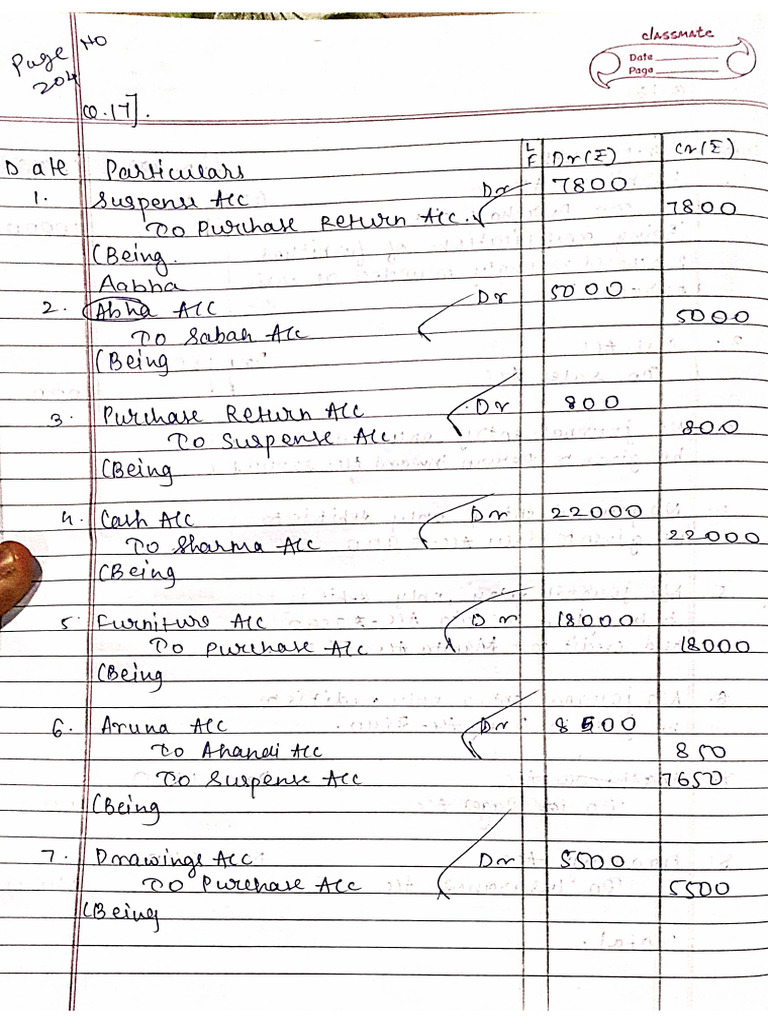 Page No
204
classmate
Date
Page
Q.17].
Date Particulars LF Dr(₹) Cr(₹)
1. Suspense A/c Dr 7800
To Purchase Return A/c. 7800
(Being
Aabha
2. Abha A/c Dr 5000
To Sabah A/c 5000
(Being
3. Purchase Return A/c Dr 800
To Suspense A/c 800
(Being
4. Cash A/c Dr 22000
To Sharma A/c 22000
(Being
5. Furniture A/c Dr 18000
To Purchase A/c 18000
(Being
6. Aruna A/c Dr 8500
To Ahandi A/c 850
To Suspense A/c 7650
(Being
7. Drawings A/c Dr 5500
To Purchase A/c 5500
(Being